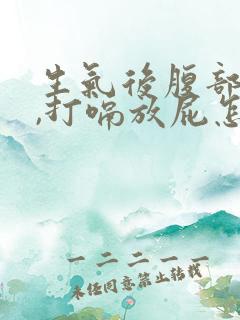 生氣後腹部
,打嗝放屁怎
一二二一一
未经同意禁止转载